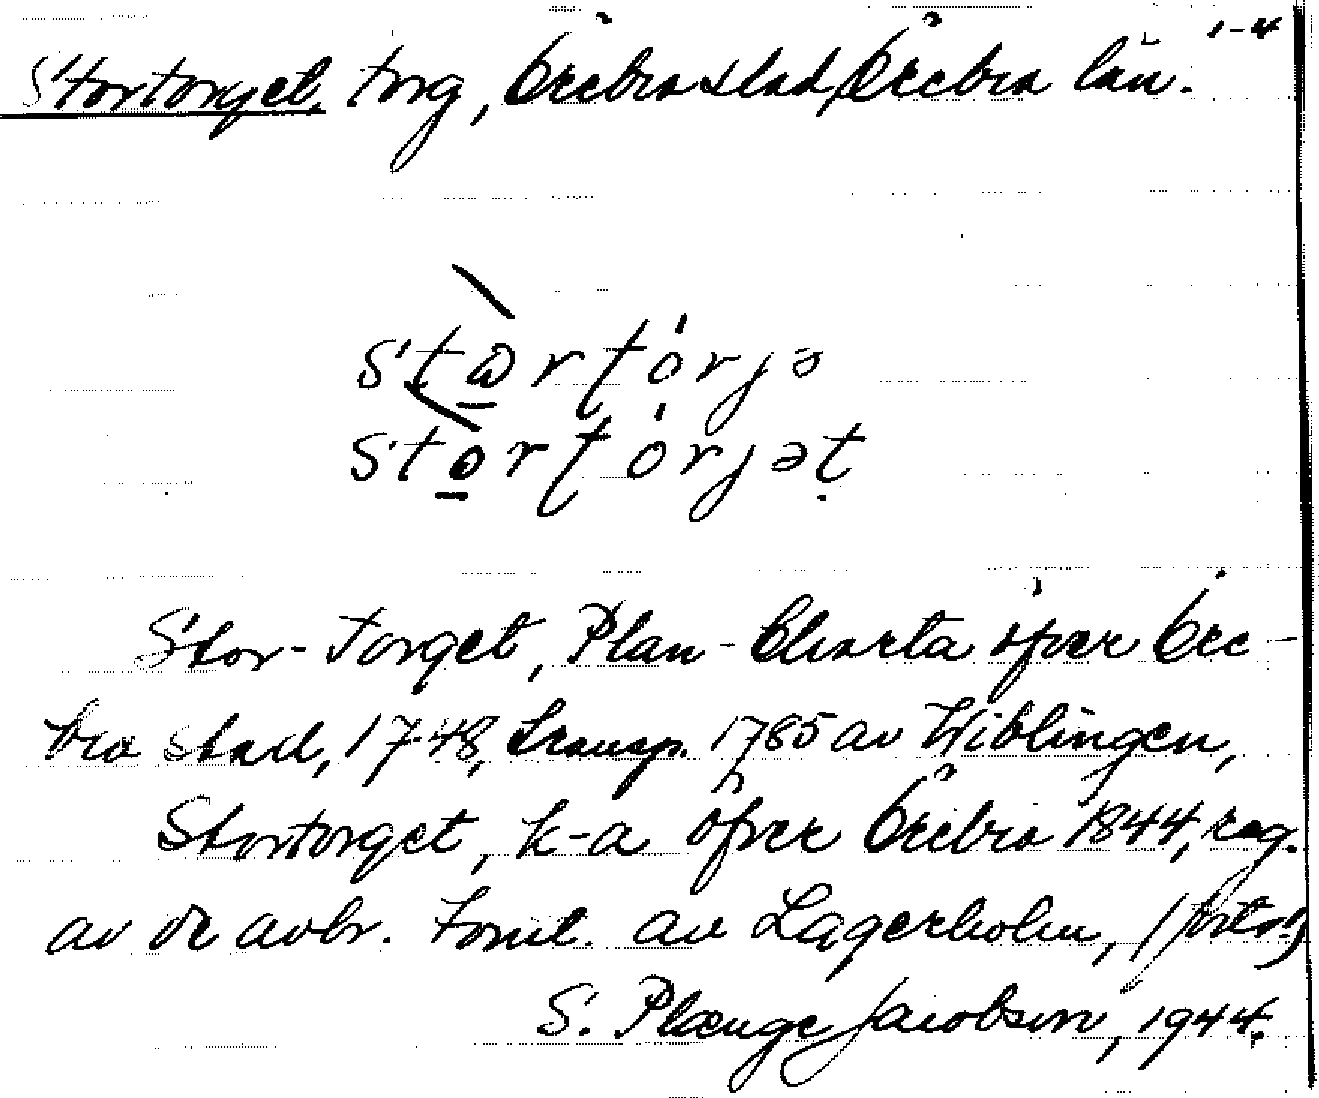 1-4
Stortorget, torg, Örebro stad, Örebro län.
Stortorget, Plan-Charta öfver Öre-
bro stad, 1748, transp. 1785 av Wiblingen,
Stortorget, k-a öfver Örebro 1844, reg.
av de avbr. tomt. av Lagerholm, (forts.)
S. Plænge Jacobson, 1944.